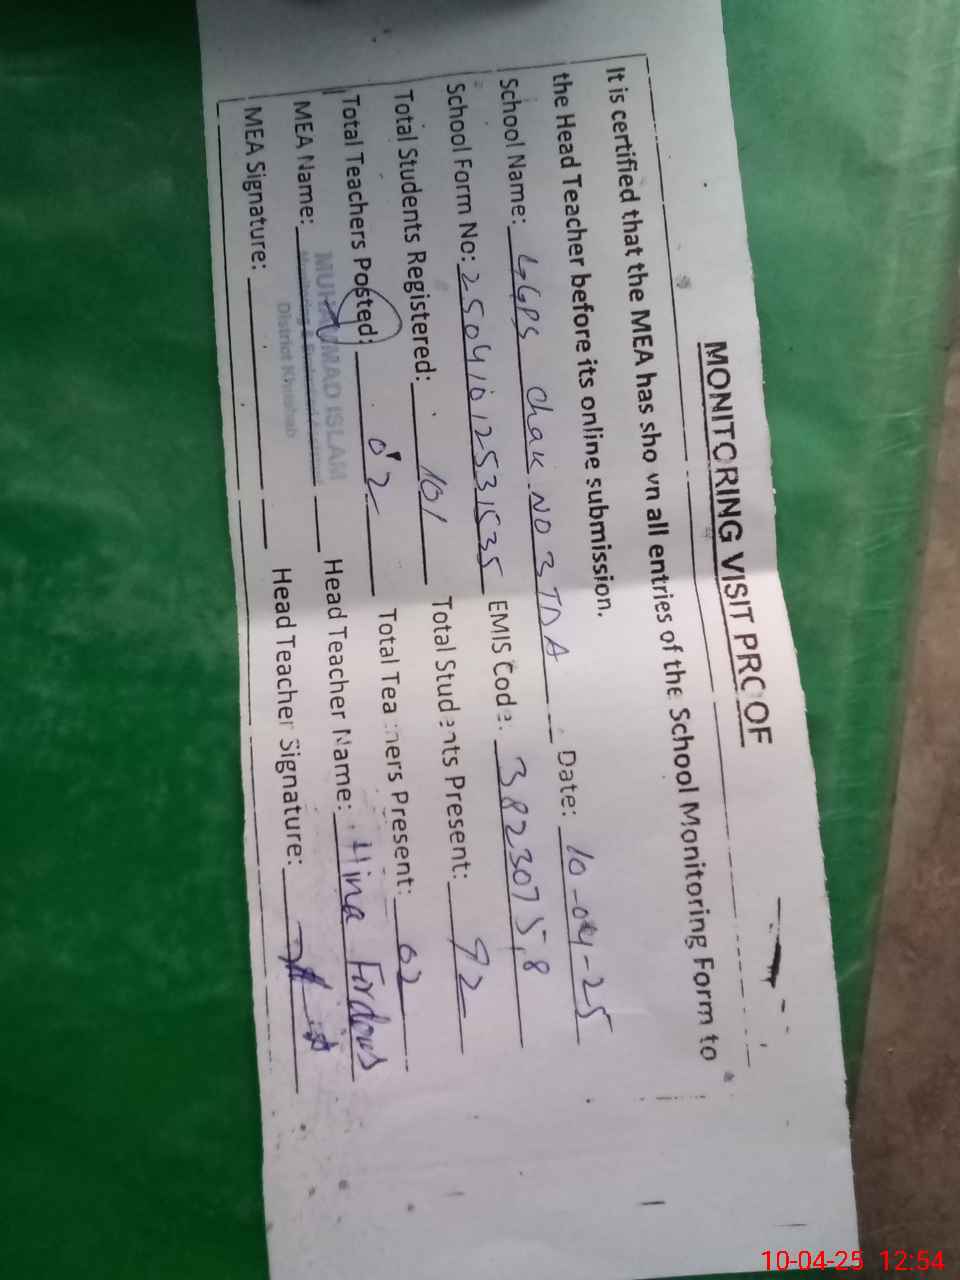 MONITORING VISIT PROOF
It is certified that the MEA has shown all entries of the School Monitoring Form to
the Head Teacher before its online submission.
School Name: GGPS Chak NO 3 TDA Date: 10-04-25
School Form No: 25041012531535 EMIS Code: 38230758
Total Students Registered: 101 Total Students Present: 92
Total Teachers Posted: 02 Total Teachers Present: 02
MEA Name: MUHAMMAD ISLAM Head Teacher Name: Hina Firdous
District Khushab
MEA Signature: Head Teacher Signature:
10-04-25 12:54